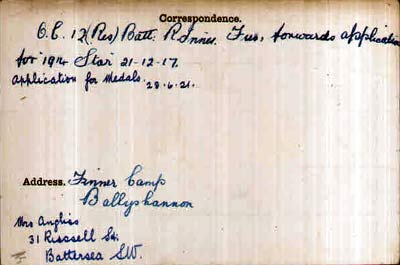 Correspondence.
O.C. 12 (Res) Batt. R. Innis. Fus. forwards application
for 1914 Star 21-12-17.
Application for Medals. 28.6.21.
Address. Finner Camp
Ballyshannon
Mrs Angliss
31 Russell St.
Battersea S.W.